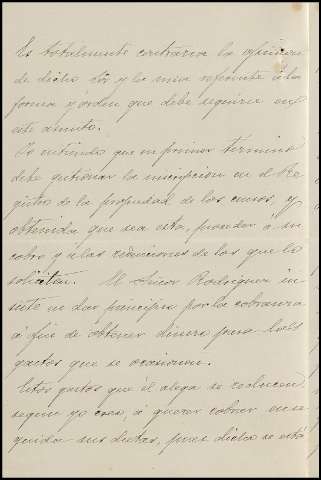 Es totalmente contraria la opinion
de dicho Sr y la mia referente á la
forma y órden que debe seguirse en
este asunto.
Yo entiendo que en primer termino
debe gestionar la inscripcion en el Re-
gistro de la propiedad de los censos, y
obtenida que sea esta, proceder á su
cobro y a las redenciones de los que lo
soliciten. El Señor Rodriguez in-
siste en dar principio por la cobranza
á fin de obtener dinero para los
gastos que se ocasionen.
Estos gastos que él alega se reducen,
segun yo creo, á querer cobrar en se-
guida sus dietas, pues dicho se está